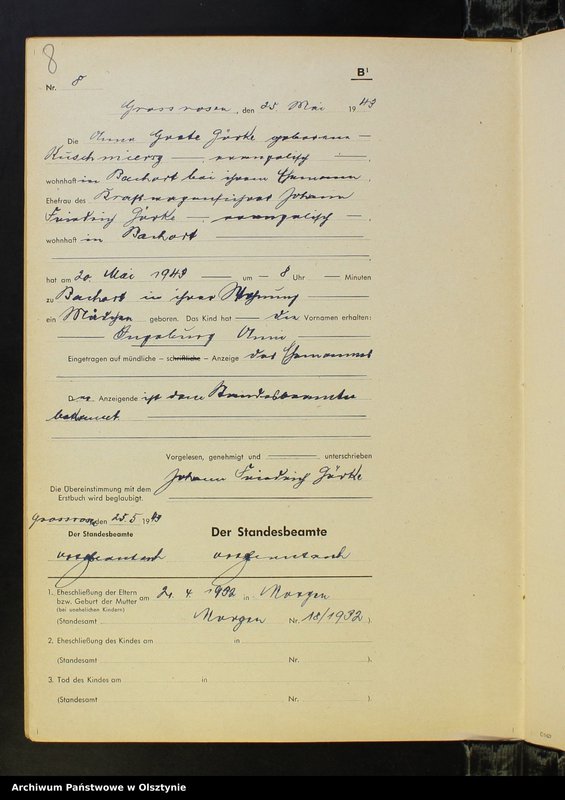 8
B¹
Nr. 8
Grossrosen, den 25. Mai 1943
Die Anna Grete Görke geborene
Kuschmierz, evangelisch,
wohnhaft in Bachort bei ihrem Ehemann,
Ehefrau des Kraftwagenführers Johann
Friedrich Görke, evangelisch,
wohnhaft in Bachort
hat am 20. Mai 1943 um 8 Uhr Minuten
zu Bachort in ihrer Wohnung
ein Mädchen geboren. Das Kind hat die Vornamen erhalten:
Ingeburg Anna
Eingetragen auf mündliche – schriftliche – Anzeige des Ehemannes
Der Anzeigende ist dem Standesbeamten
bekannt.
Vorgelesen, genehmigt und unterschrieben
Johann Friedrich Görke
Die Übereinstimmung mit dem
Erstbuch wird beglaubigt.
Grossrosen, den 25.5 1943
Der Standesbeamte
Der Standesbeamte
1. Eheschließung der Eltern
bzw. Geburt der Mutter am 2. 4. 1932 in Morgen
(bei unehelichen Kindern)
(Standesamt Morgen Nr. 18/1932).
2. Eheschließung des Kindes am in
(Standesamt Nr. ).
3. Tod des Kindes am in
(Standesamt Nr. ).
Archiwum Państwowe w Olsztynie